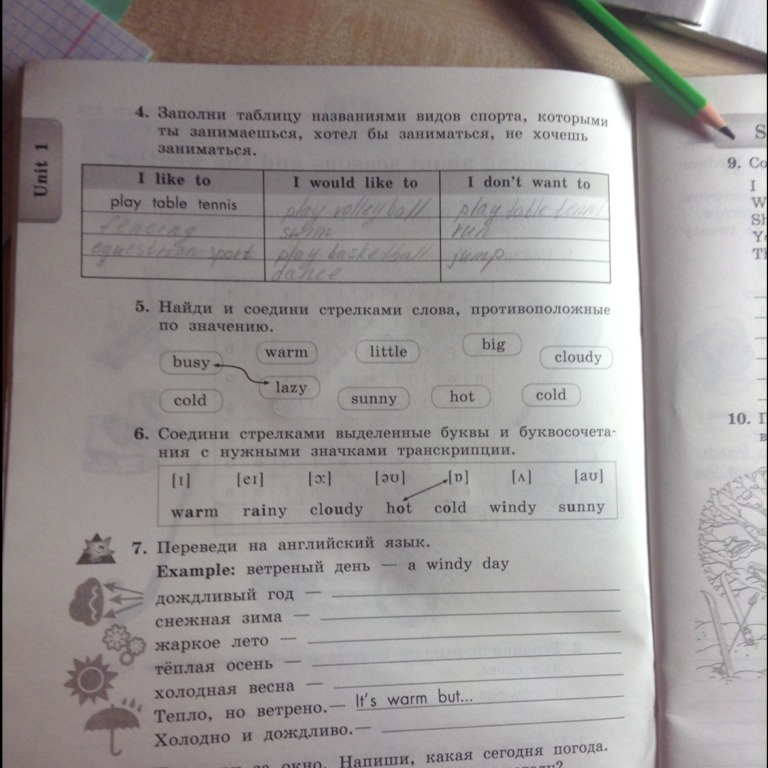 Unit 1
4. Заполни таблицу названиями видов спорта, которыми
ты занимаешься, хотел бы заниматься, не хочешь
заниматься.
I like to I would like to I don't want to
play table tennis play volleyball play table
fencing swim run
equestrian sport play basketball jump
dance
5. Найди и соедини стрелками слова, противоположные
по значению.
busy warm little big cloudy
cold lazy sunny hot cold
6. Соедини стрелками выделенные буквы и буквосочета-
ния с нужными значками транскрипции.
[ɪ] [eɪ] [ɔː] [əʊ] [ɒ] [ʌ] [aʊ]
warm rainy cloudy hot cold windy sunny
7. Переведи на английский язык.
Example: ветреный день — a windy day
дождливый год —
снежная зима —
жаркое лето —
тёплая осень —
холодная весна —
Тепло, но ветрено.— It's warm but...
Холодно и дождливо.—
за окно. Напиши, какая сегодня погода.
S
9. Со
I
W
Sh
Ye
Th
10. П
в